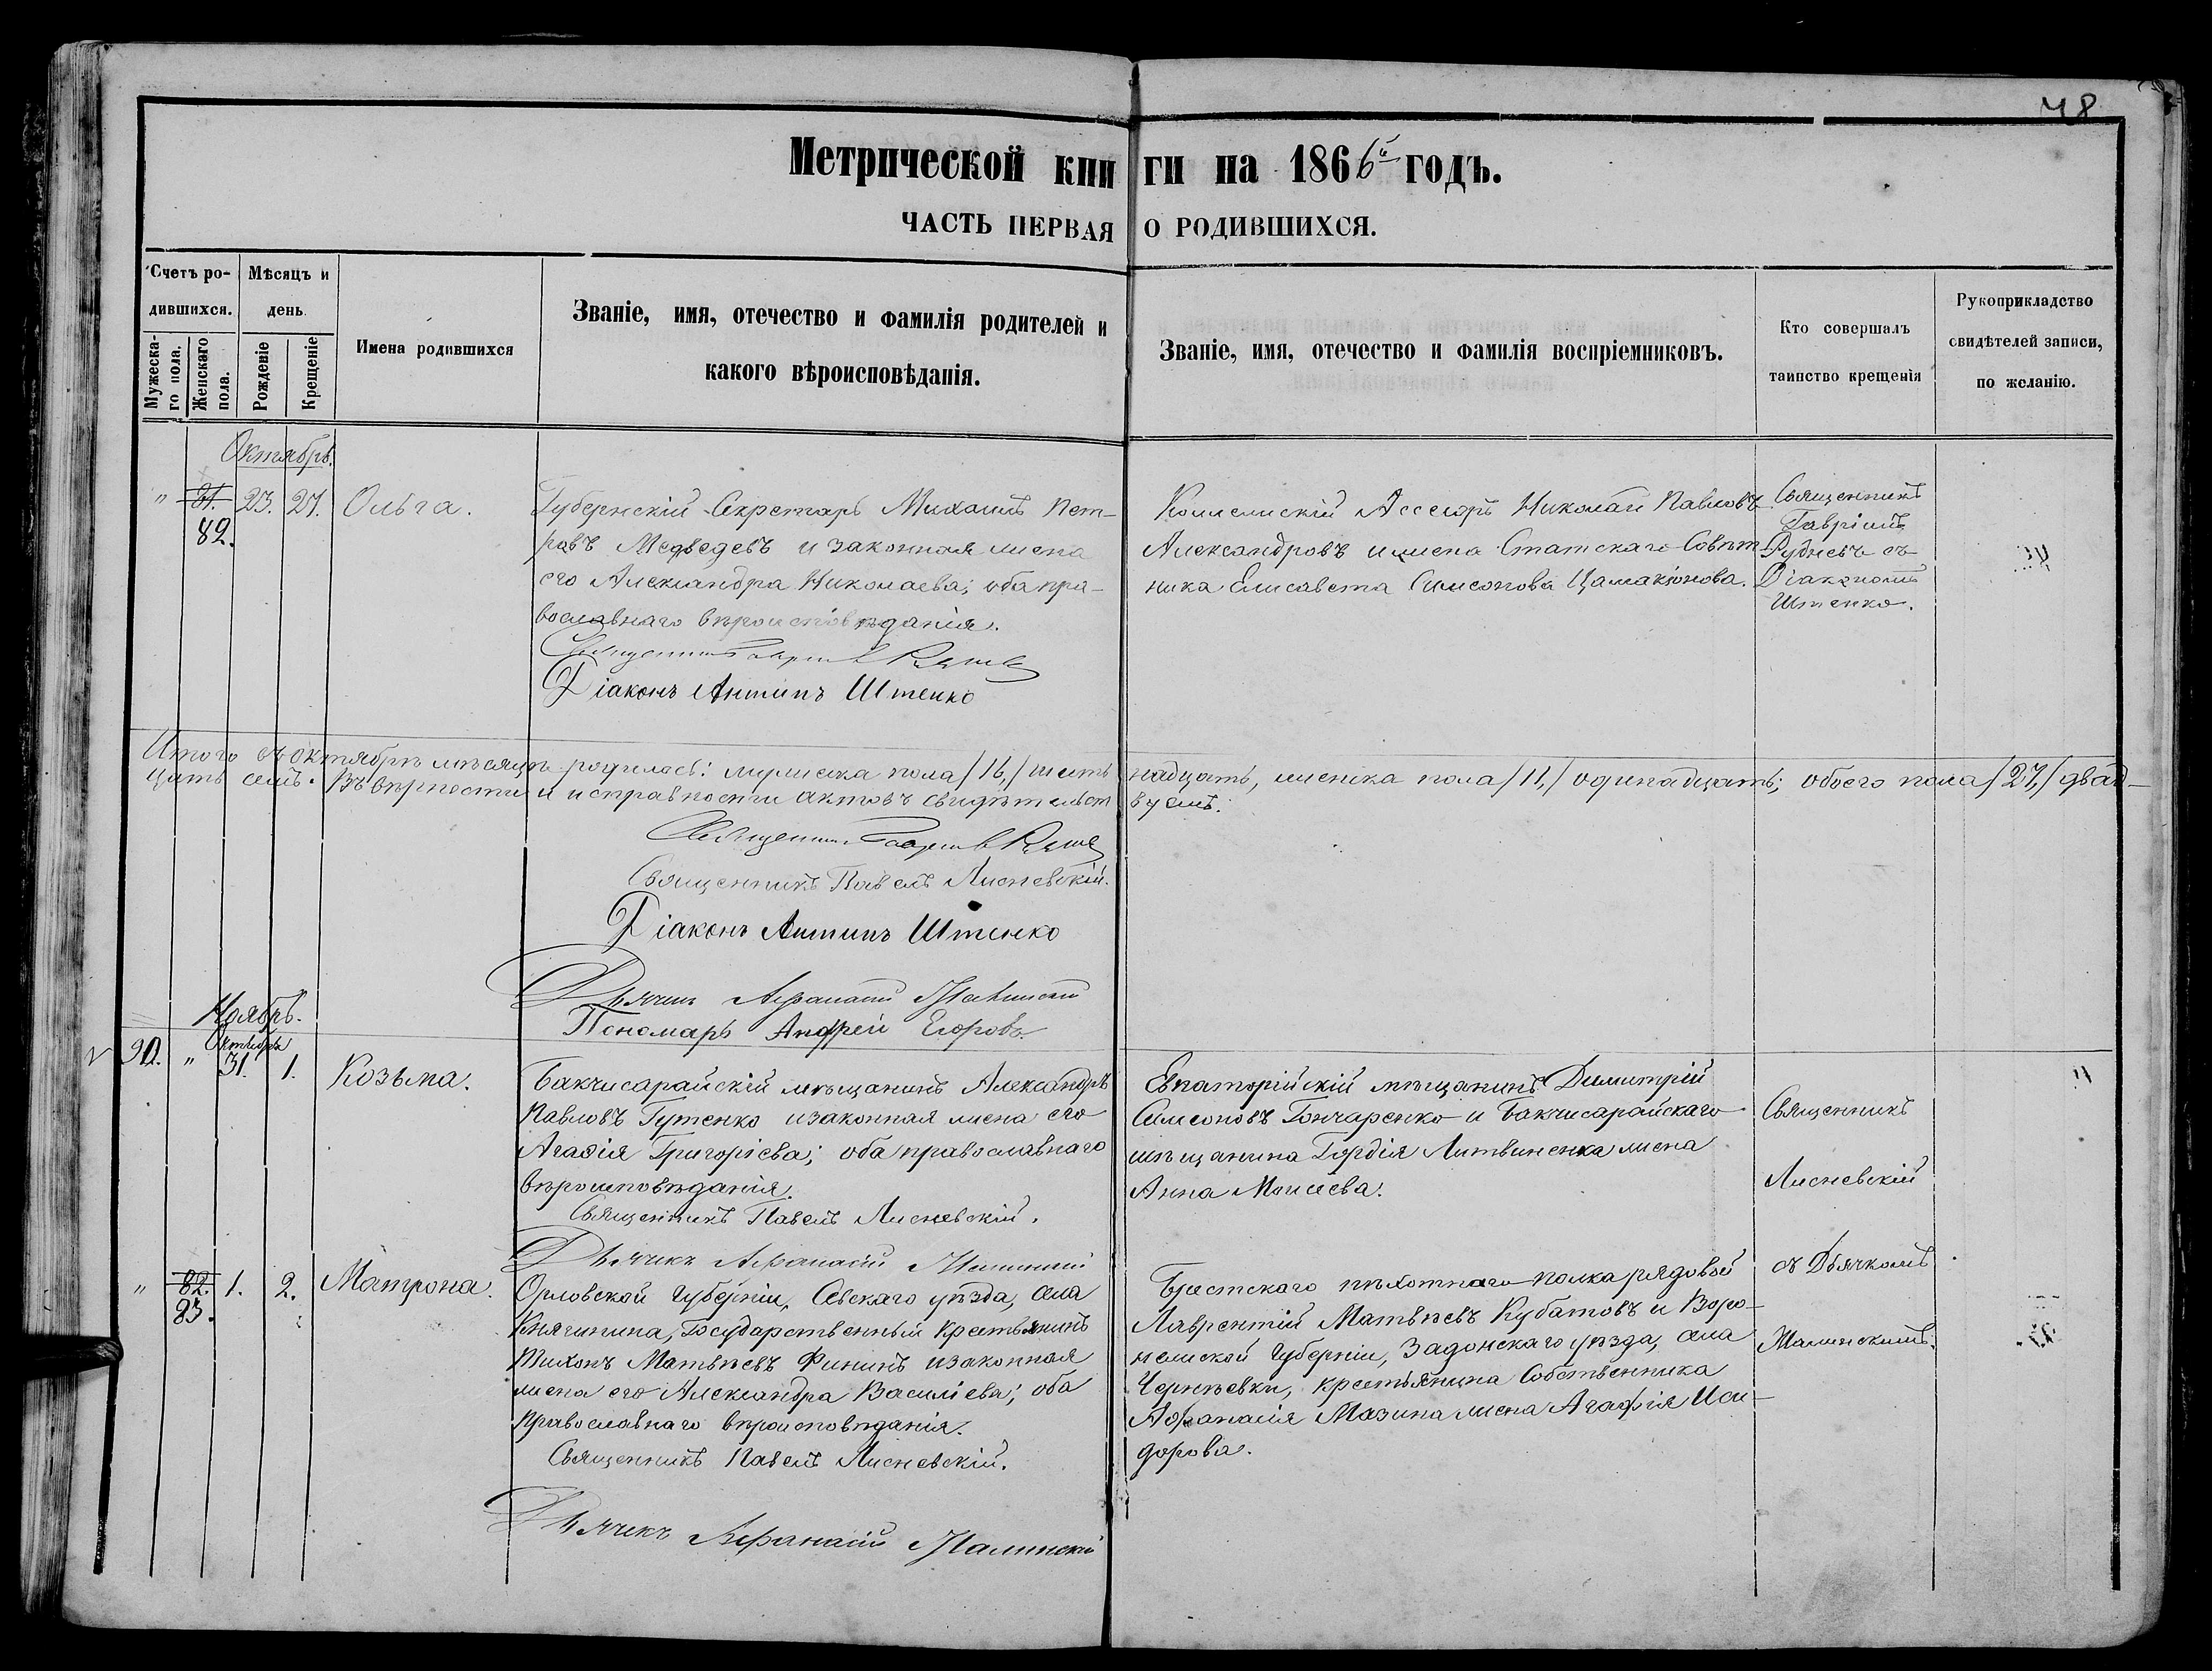 48
Метрической книги на 1866й годъ.
ЧАСТЬ ПЕРВАЯ О РОДИВШИХСЯ.
Счетъ ро-
дившихся.
Мужеска-
го пола.
Женскаго
пола.
Мѣсяцъ и
день.
Рожденіе
Крещеніе
Имена родившихся
Званіе, имя, отчество и фамилія родителей и
какого вѣроисповѣданія.
Званіе, имя, отчество и фамилія воспріемниковъ.
Кто совершалъ
таинство крещенія
Рукоприкладство
свидѣтелей записи,
по желанію.
Октябрь.
" 81. 23. 27. Ольга.
82.
Губернскій Секретарь Михаилъ Пет-
ровъ Медведевъ и законная жена
его Александра Николаева; оба пра-
вославнаго вѣроисповѣданія.
Священникъ Гавріилъ Рудневъ
Діаконъ Антипъ Штенко
Коллежскій Ассесоръ Николай Павловъ
Александровъ и жена Статскаго Совѣт-
ника Елисавета Симеонова Цамакіонова.
Священникъ
Гавріилъ
Рудневъ съ
Діакономъ
Штенко.
Итого въ октябрѣ мѣсяцѣ родилось: мужеска пола /16,/ шестьнадцать, женска пола /11,/ одинадцать; обоего пола /27,/ двад-
цать семь. Въ вѣрности и исправности актовъ свидѣтельствуемъ:
Священникъ Гавріилъ Рудневъ
Священникъ Павелъ Лисневскій.
Діаконъ Антипъ Штенко
Дьячекъ Афанасій Жалинскій
Пономарь Андрей Егоровъ.
Ноябрь.
Октября
90. " 31. 1. Козьма.
Бакчисарайскій мѣщанинъ Александръ
Павловъ Гутенко и законная жена его
Агафія Григоріева; оба православнаго
вѣроисповѣданія.
Священникъ Павелъ Лисневскій.
Дьячекъ Афанасій Жалинскій
Евпаторійскій мѣщанинъ Димитрій
Симеоновъ Гончаренко и Бакчисарайскаго
мѣщанина Гордія Литвиненка жена
Анна Моисеева.
Священникъ
Лисневскій
съ Дьячкомъ
Жалинскимъ.
" 82. 1. 2. Матрона.
83.
Орловской Губерніи, Севскаго уѣзда, села
Княгинина, Государственный Крестьянинъ
Тихонъ Матвѣевъ Фининъ и законная
жена его Александра Василіева; оба
Православнаго вѣроисповѣданія.
Священникъ Павелъ Лисневскій.
Дьячекъ Афанасій Жалинскій
Брестского пѣхотнаго полка рядовой
Лаврентій Матвѣевъ Кубатовъ и Воро-
нежской Губерніи, Задонскаго уѣзда, села
Чернѣевки, крестьянина Собственника
Афанасія Мазина жена Агафія Иси-
дорова.